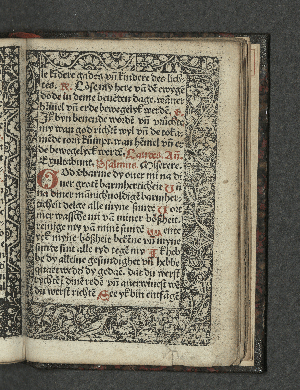 le kīdere gades vñ kindere des lich
tes. ꝶ. Lőse my here vā dē ewygē
dode in deme beuēden dage. wāner
hēmel vñ erde bewegelyk werdē. ꝟ.
Ik byn beuende wordē vñ vrüchte
my wan god richtē wyl vñ de toka
mede torn kumpt. wan hēmel vñ er
de bewegelyck werdē. Laudes. Añ.
Exultabunt. Psalmus. Miserere.
God vorbarme dy ouer mi na di
ner grotē barmherticheit Vñ
na diner mānichuoldigē barmher
ticheit delge alle myne sunde Vort
mer wasche mi vā miner bößheit.
reinige my vā minē sundē Wente
yck myne bößheit bekēne vñ myne
sunde sint alle tyd tegē my Ik heb
be dy alleine gesundighet vñ hebbe
quaet vor dy gedaē. dat du werst
rechtē dinē redē vñ auerwinest wē
du werst richtē See yk bin entfāgē